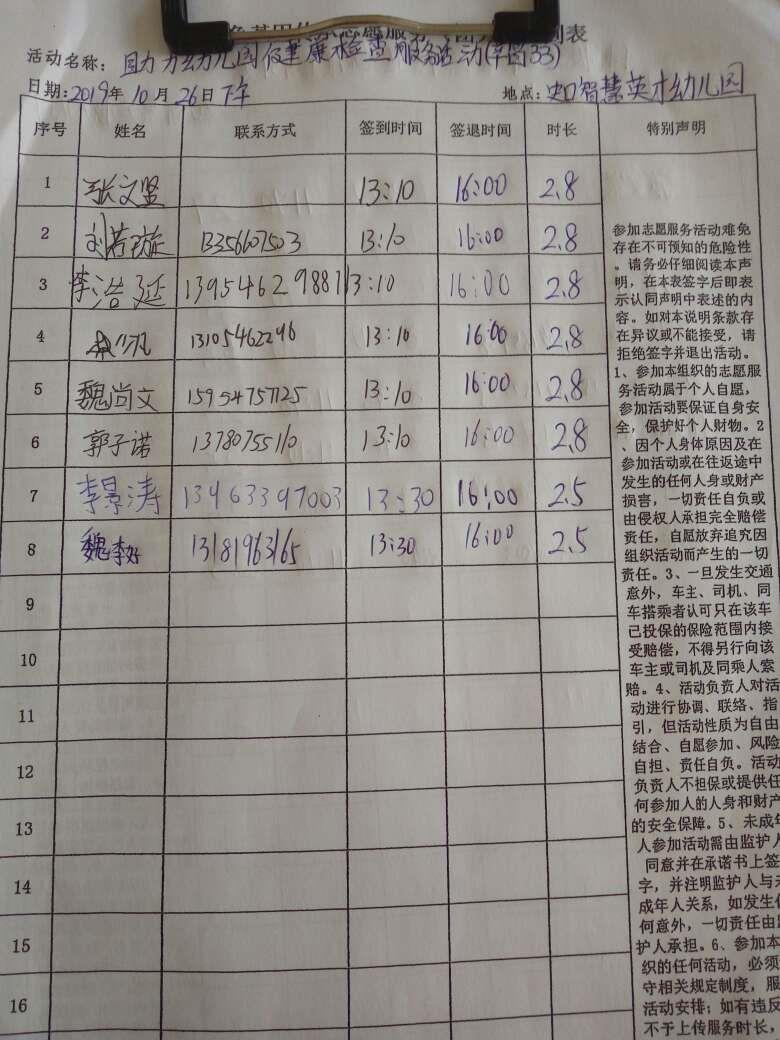 活动名称：助力幼儿园健康检查服务活动(第33)
日期：2019年10月26日下午 地点：史口智慧英才幼儿园
序号 姓名 联系方式 签到时间 签退时间 时长 特别声明
1 张文坚 13:10 16:00 2.8
2 刘若璇 13356607503 13:10 16:00 2.8
3 李浩延 13954629887 13:10 16:00 2.8
4 13105462296 13:10 16:00 2.8
5 魏尚文 15954757125 13:10 16:00 2.8
6 郭子诺 13780755110 13:10 16:00 2.8
7 李景涛 13963397003 13:30 16:00 2.5
8 魏李好 13181963165 13:30 16:00 2.5
9
10
11
12
13
14
15
16
参加志愿服务活动难免
存在不可预知的危险性
。请务必仔细阅读本声
明，在本表签字后即表
示认同声明中表述的内
容。如对本说明条款存
在异议或不能接受，请
拒绝签字并退出活动。
1、参加本组织的志愿服
务活动属于个人自愿，
参加活动要保证自身安
全，保护好个人财物。2
、因个人身体原因及在
参加活动或在往返途中
发生的任何人身或财产
损害，一切责任自负或
由侵权人承担完全赔偿
责任，自愿放弃追究因
组织活动而产生的一切
责任。3、一旦发生交通
意外，车主、司机、同
车搭乘者认可只在该车
已投保的保险范围内接
受赔偿，不得另行向该
车主或司机及同乘人索
赔。4、活动负责人对活
动进行协调、联络、指
引，但活动性质为自由
结合、自愿参加、风险
自担、责任自负。活动
负责人不担保或提供任
何参加人的人身和财产
的安全保障。5、未成年
人参加活动需由监护人
同意并在承诺书上签
字，并注明监护人与未
成年人关系，如发生任
何意外，一切责任由监
护人承担。6、参加本
织的任何活动，必须
守相关规定制度，服
活动安排；如有违反
不于上传服务时长，